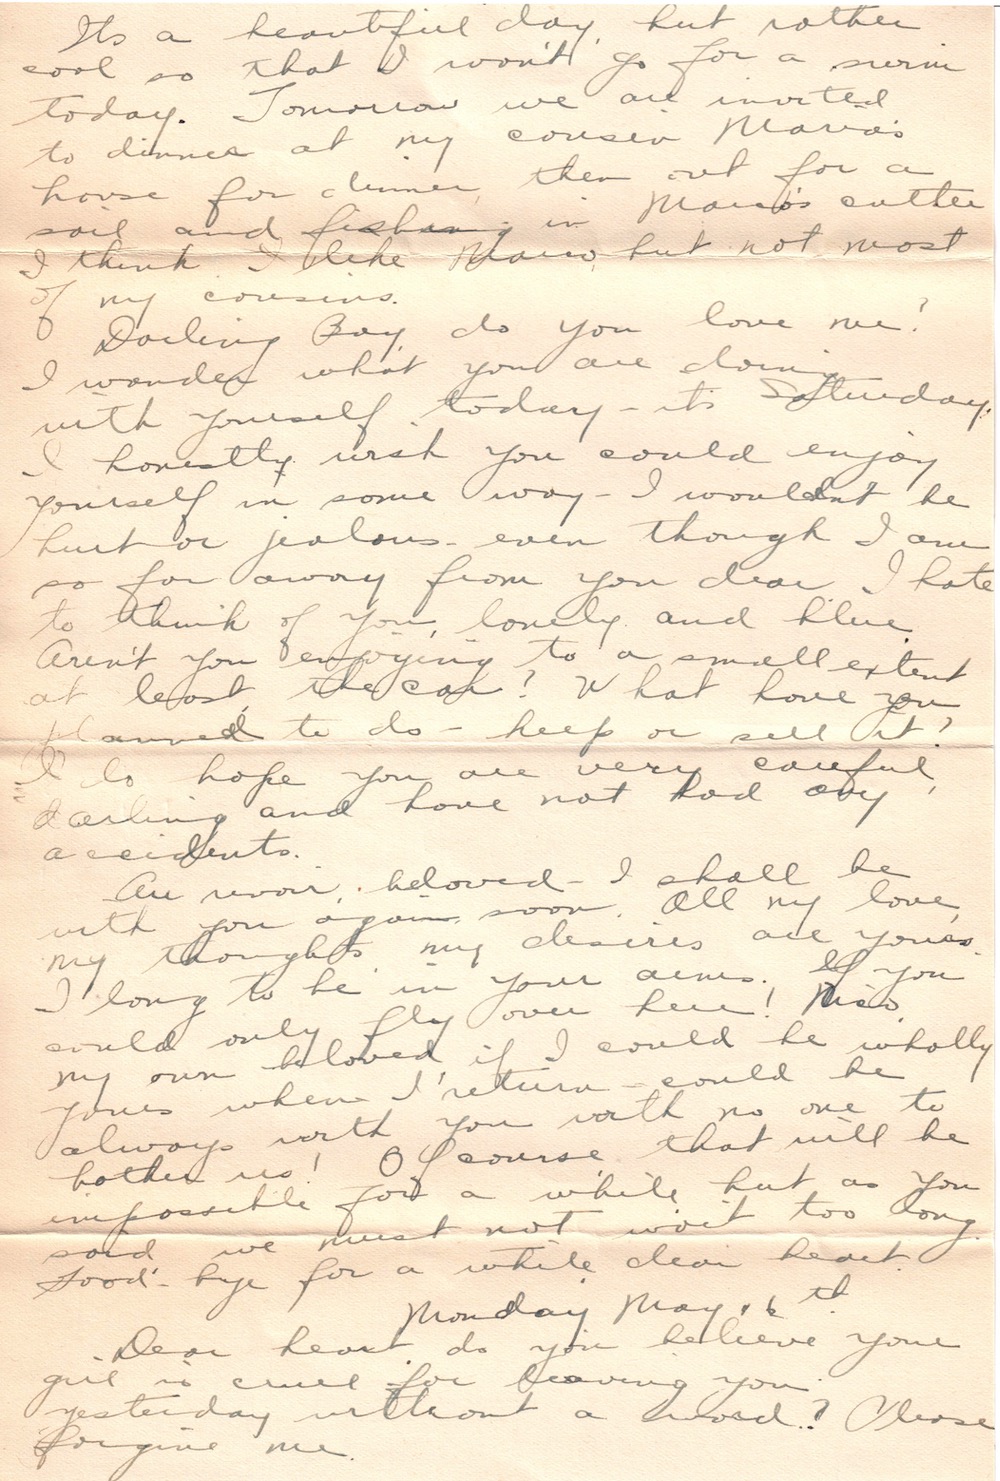 Its a beautiful day, but rather
cool so that I won't go for a swim
today. Tomorrow we are invited
to dinner at my cousin Mario's
house for dinner, then out for a
sail and fishing in Mario's cutter
I think. I like Mario, but not most
of my cousins.
Darling Boy, do you love me?
I wonder what you are doing
with yourself today - its Saturday.
I honestly wish you could enjoy
yourself in some way - I wouldn't be
hurt or jealous - even though I am
so far away from you dear I hate
to think of you, lonely and blue.
Aren't you enjoying to a small extent
at least, the car? What have you
planned to do - keep or sell it?
I do hope you are very careful,
darling and have not had any
accidents.
Au revoir, beloved - I shall be
with you again soon. All my love,
my thoughts, my desires are yours.
I long to be in your arms. If you
could only fly over here!
my own beloved, if I could be wholly
yours when I return - could be
always with you with no one to
bother us! Of course, that will be
impossible for a while but as you
said we must not wait too long.
Good-bye for a while dear heart.
Monday May 16th
Dear heart do you believe your
girl is cruel for leaving you
yesterday without a word? Please
forgive me.